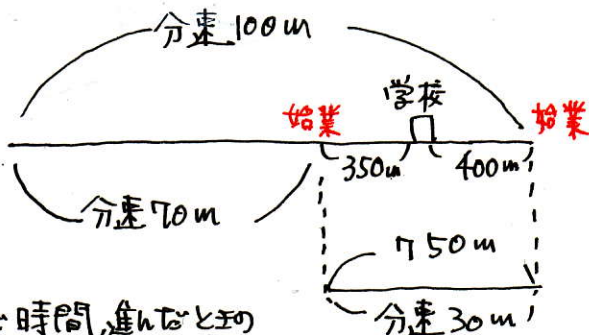 分速100m
学校
始業 始業
350m 400m
分速70m
750m
分速30m
時間進んだときの